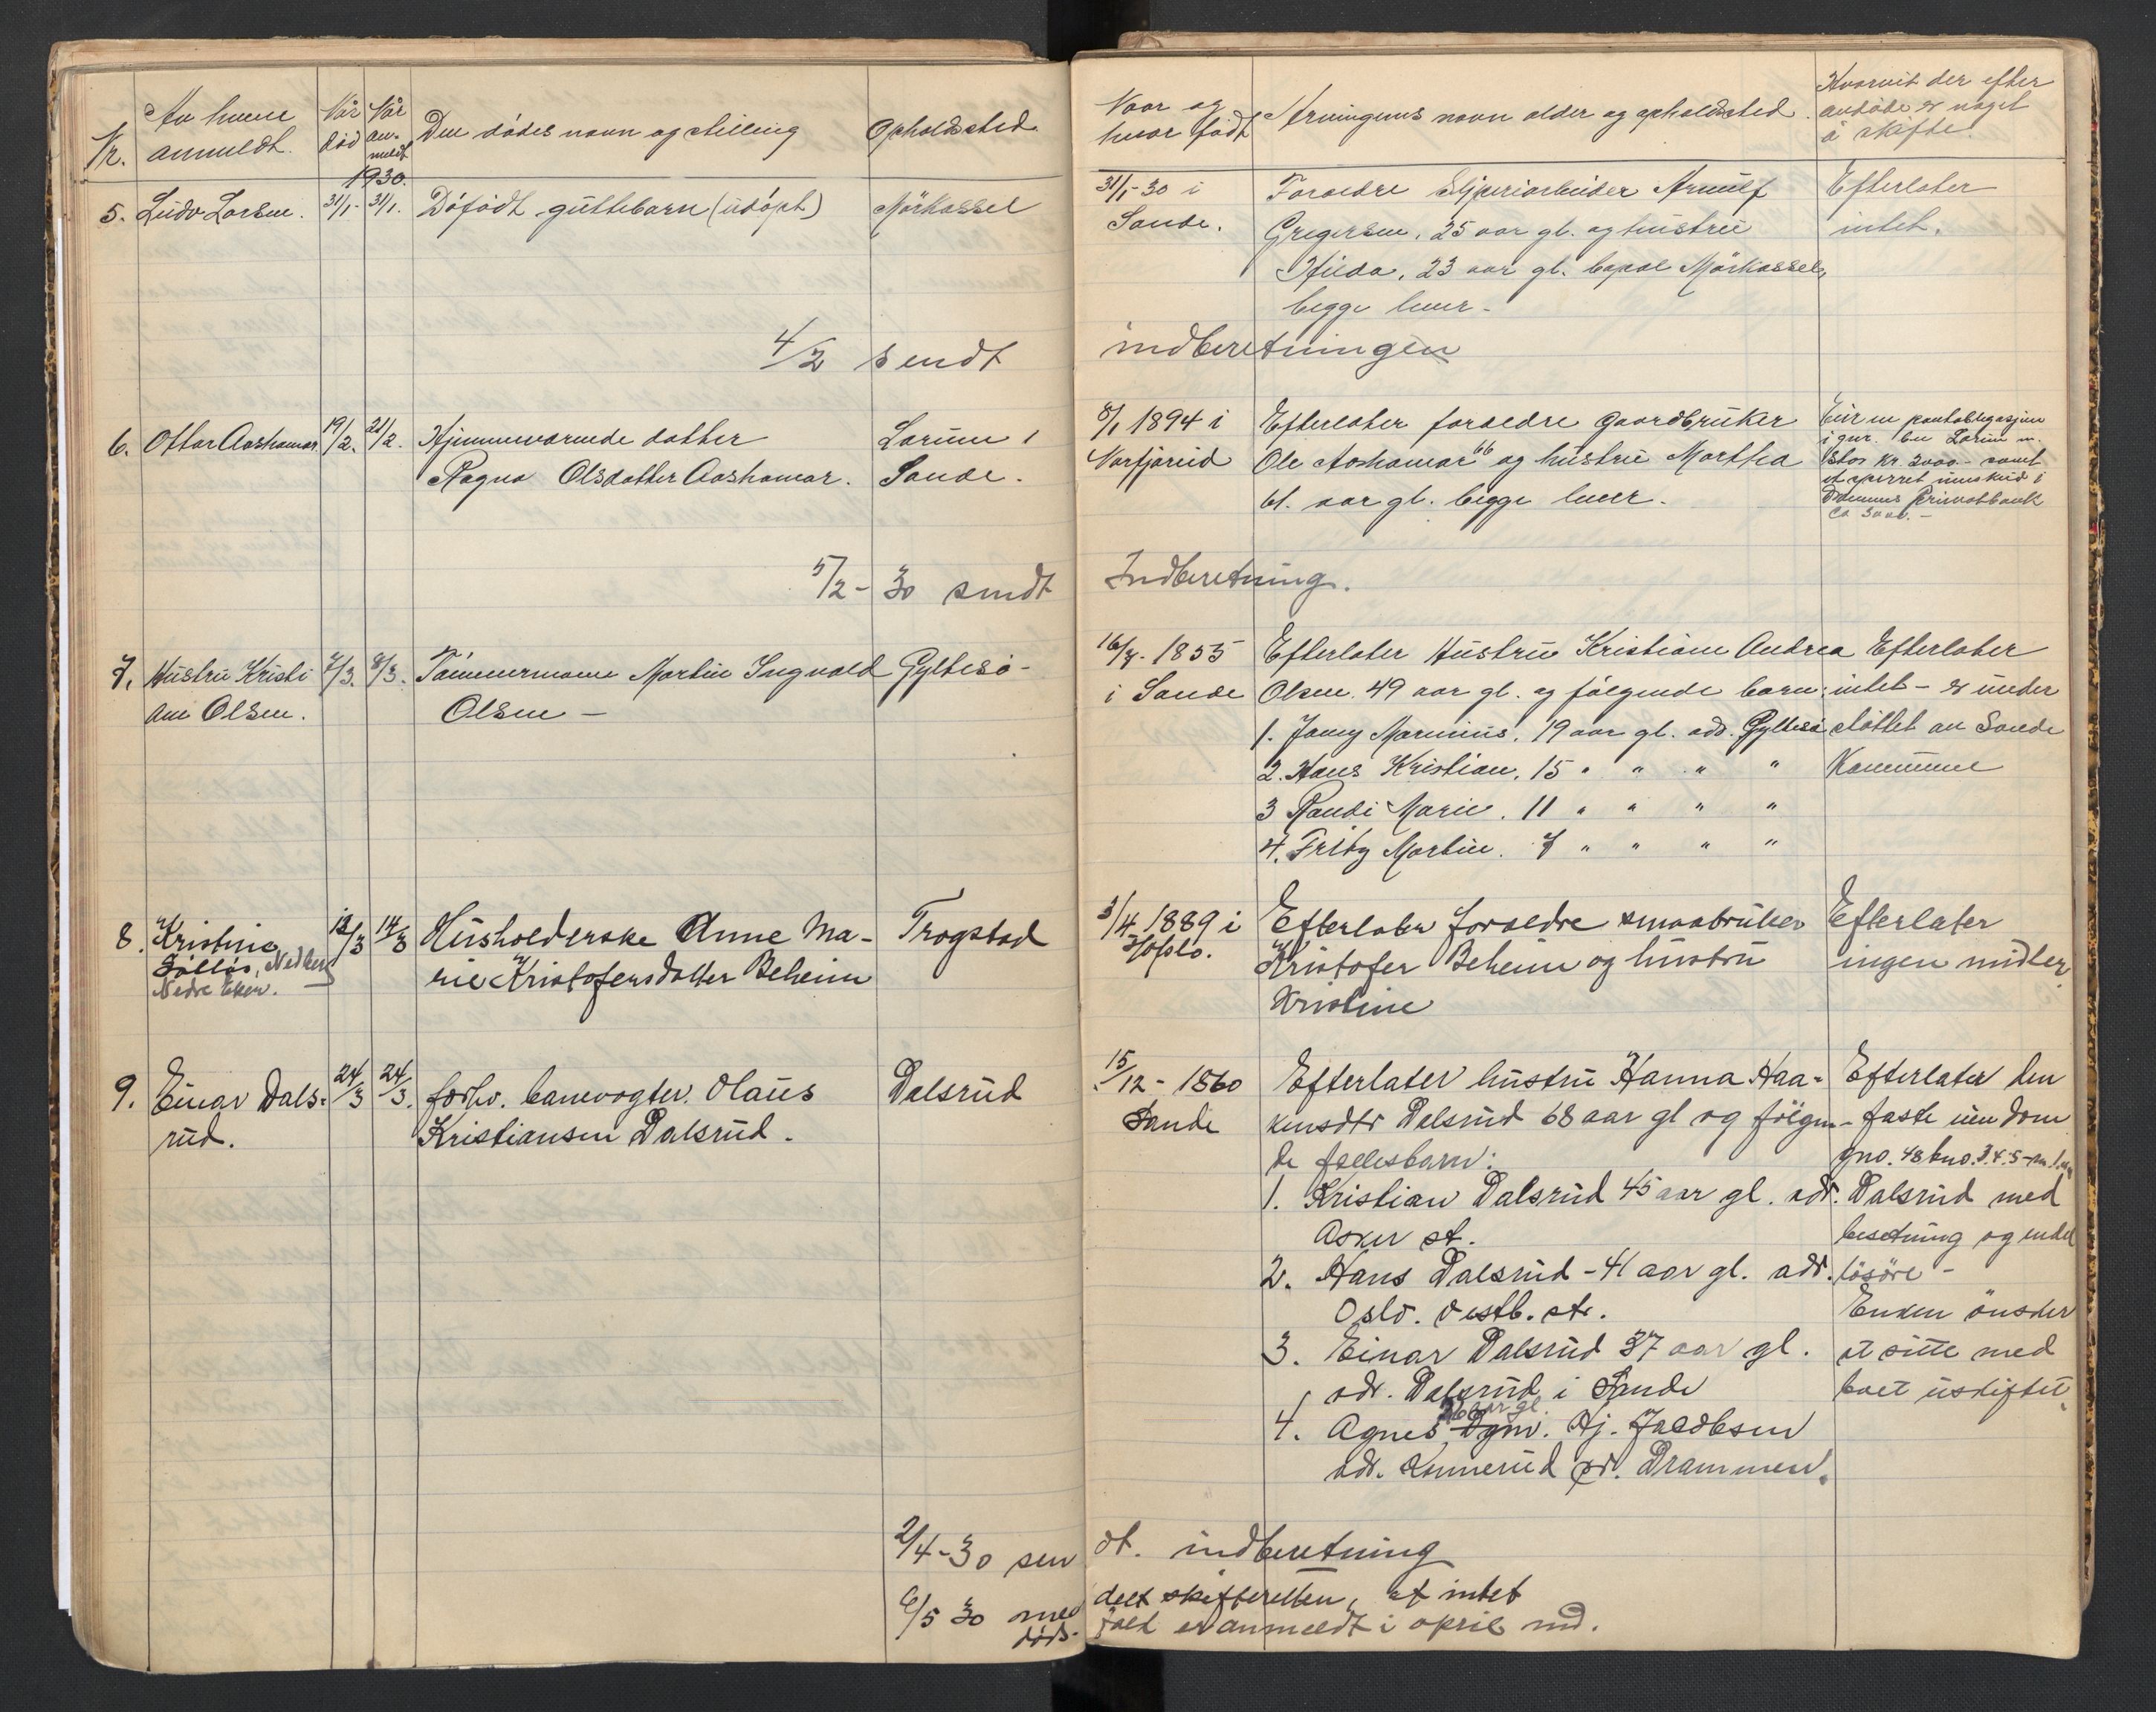 Nr.
Av hvem anmeldt.
Når død
Når an-meldt
Den dødes navn og stilling
Opholdssted
Naar og hvor født
Arvingens navn alder og opholdssted.
Hvorvit der efter
avdøde er noget
å skifte.
1930.
5. Ludv Larsen. 31/1- 31/1. Døfødt guttebarn (udøpt) Mörkassel
31/1-30 i
Sande.
Foraeldre Sliperiarbeider Arnulf
Gregersen, 25 aar gl. og hustru
Hilda, 23 aar gl. bopæl Mörkassel,
begge lever -
Efterlater
intet.
4/2 sendt indberetningen
6. Ottar Aashamar 19/2. 21/2. Hjemmeværende datter
Ragna Olsdatter Aashamar.
Larum i
Sande.
8/1 1894 i
Norfjoreid
Efterlater foraeldre Gaardbruker
Ole Aashamar 66 og hustru Martha
61. aar gl. begge lever.
Eier en pantobligasjon
i gnr. bn Larum m.
stor kr. 3000.- samt
et sperret innskud i
Drammens Privatbank
ca 3000.-
5/2 - 30 sendt Indberetning.
7. Hustru Kristi
ane Olsen.
7/3. 8/3. Tømmermann Martin Ingvald
Olsen -
Gyltesø -
16/7- 1855
i Sande
Efterlater Hustru Kristiane Andrea
Olsen. 49 aar gl. og følgende barn:
1. Jonny Marinius. 19 aar gl. adr. Gyltesø
2. Hans Kristian. 15 " " " "
3 Randi Marie. 11 " " " "
4. Fritz Martin. 7 " " " "
Efterlater
intet - er under
støttet av Sande
Kommune
8. Kristine
Sølløs, Nedberg
Nedre Eker.
12/3 14/3 Husholderske Anne Ma-
rie Kristofersdatter Beheim
Trogstad
3/4 1889 i
Hofslo.
Efterlater foraeldre smaabruker
Kristofer Beheim og hustru
Kristine
Efterlater
ingen midler.
9. Einar Dals-
rud.
24/3 24/3. forhv. banevogter. Olaus
Kristiansen Dalsrud.
Dalsrud
15/12 - 1860
Sande
Efterlater hustru Hanna Haa-
kensdtr Dalsrud 68 aar gl og følgen-
de fællesbarn:
1. Kristian Dalsrud 45 aar gl. adr.
Asker st.
2. Hans Dalsrud - 41 aar gl. adr.
Oslo. Vestb. st.
3. Einar Dalsrud 37 aar gl.
adr. Dalsrud i Sande
36 aar gl.
4. Agnes, Dgm. Hj. Jacobsen
adr. Konnerud pr. Drammen.
Efterlater den
faste eiendom
gno. 48 bno. 3.4.5-
Dalsrud med
besetning og endel
løsøre -
Enken ønsker
at sitte med
boet uskiftet.
2/4-30 sendt. indberetning
6/5 30 meddelt skifteretten, at intet
dødsfald er anmeldt i april md.